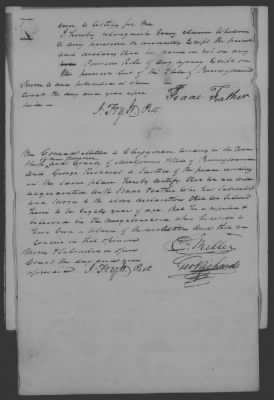 em to testify for me
I hereby relinquish every claim whatever
to any pension or annuity except the present
and declare that my name is not on any
Pension Rolls of any agency except on
the pension list of the State of Pennsylvania
Sworn to and subscribed in open
Court the day and year afore
said
Isaac Feather
J. Fry Jr Prot
We Conrad Miller a Clergyman residing in the Town
County of Montgomery State of Pennsylvania
And George Richards a Justice of the peace residing
in the same place hereby certify that we are well
acquainted with Isaac Feather who has subscribed
and sworn to the above declaration that we believe
him to be eighty years of age that he is reputed &
believed in the neighbourhood where he resides to
have been a soldier of the revolution and that we
concur in that opinion
Sworn & subscribed in open
Court the day and year
aforesaid
J. Fry Jr Prot
C. Miller
Geo Richards